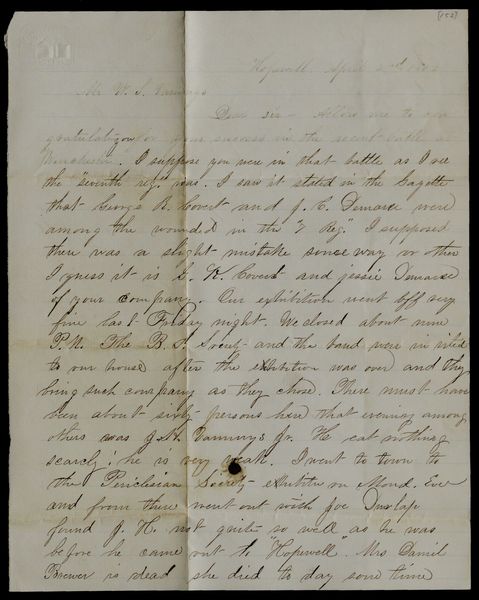 [152]
Hopewell April 2nd 1862
Mr W. S. Vannuys
Dear Sir - Allow me to con
gratulate you for your success in the recent battle at
Winchester. I suppose you were in that battle as I see
the "seventh reg." was. I saw it stated in the Gazette
that George R. Covert and J. C. Demaree were
among the wounded in the "7 Reg". I supposed
there was a slight mistake some way or other
I guess it is G. K. Covert and Jessie Demaree
of your company. Our exhibition went off very
fine last Friday night. We closed about nine
P.M. The B. S. Society and the band were invited
to our house after the exhibition was over and they
bring such company as they chose. There must have
been about sixty persons here that evening among
others was J. H. Vannuys Jr. He eat nothing
scarcly! he is very weak. I went to town to
the Periclesian Society exhibition on Mond. Eve
and from there went out with Joe Dunlap
found J. H. not quite so well as he was
before he came out to "Hopewell". Mrs Daniel
Brewer is dead she died to day some time